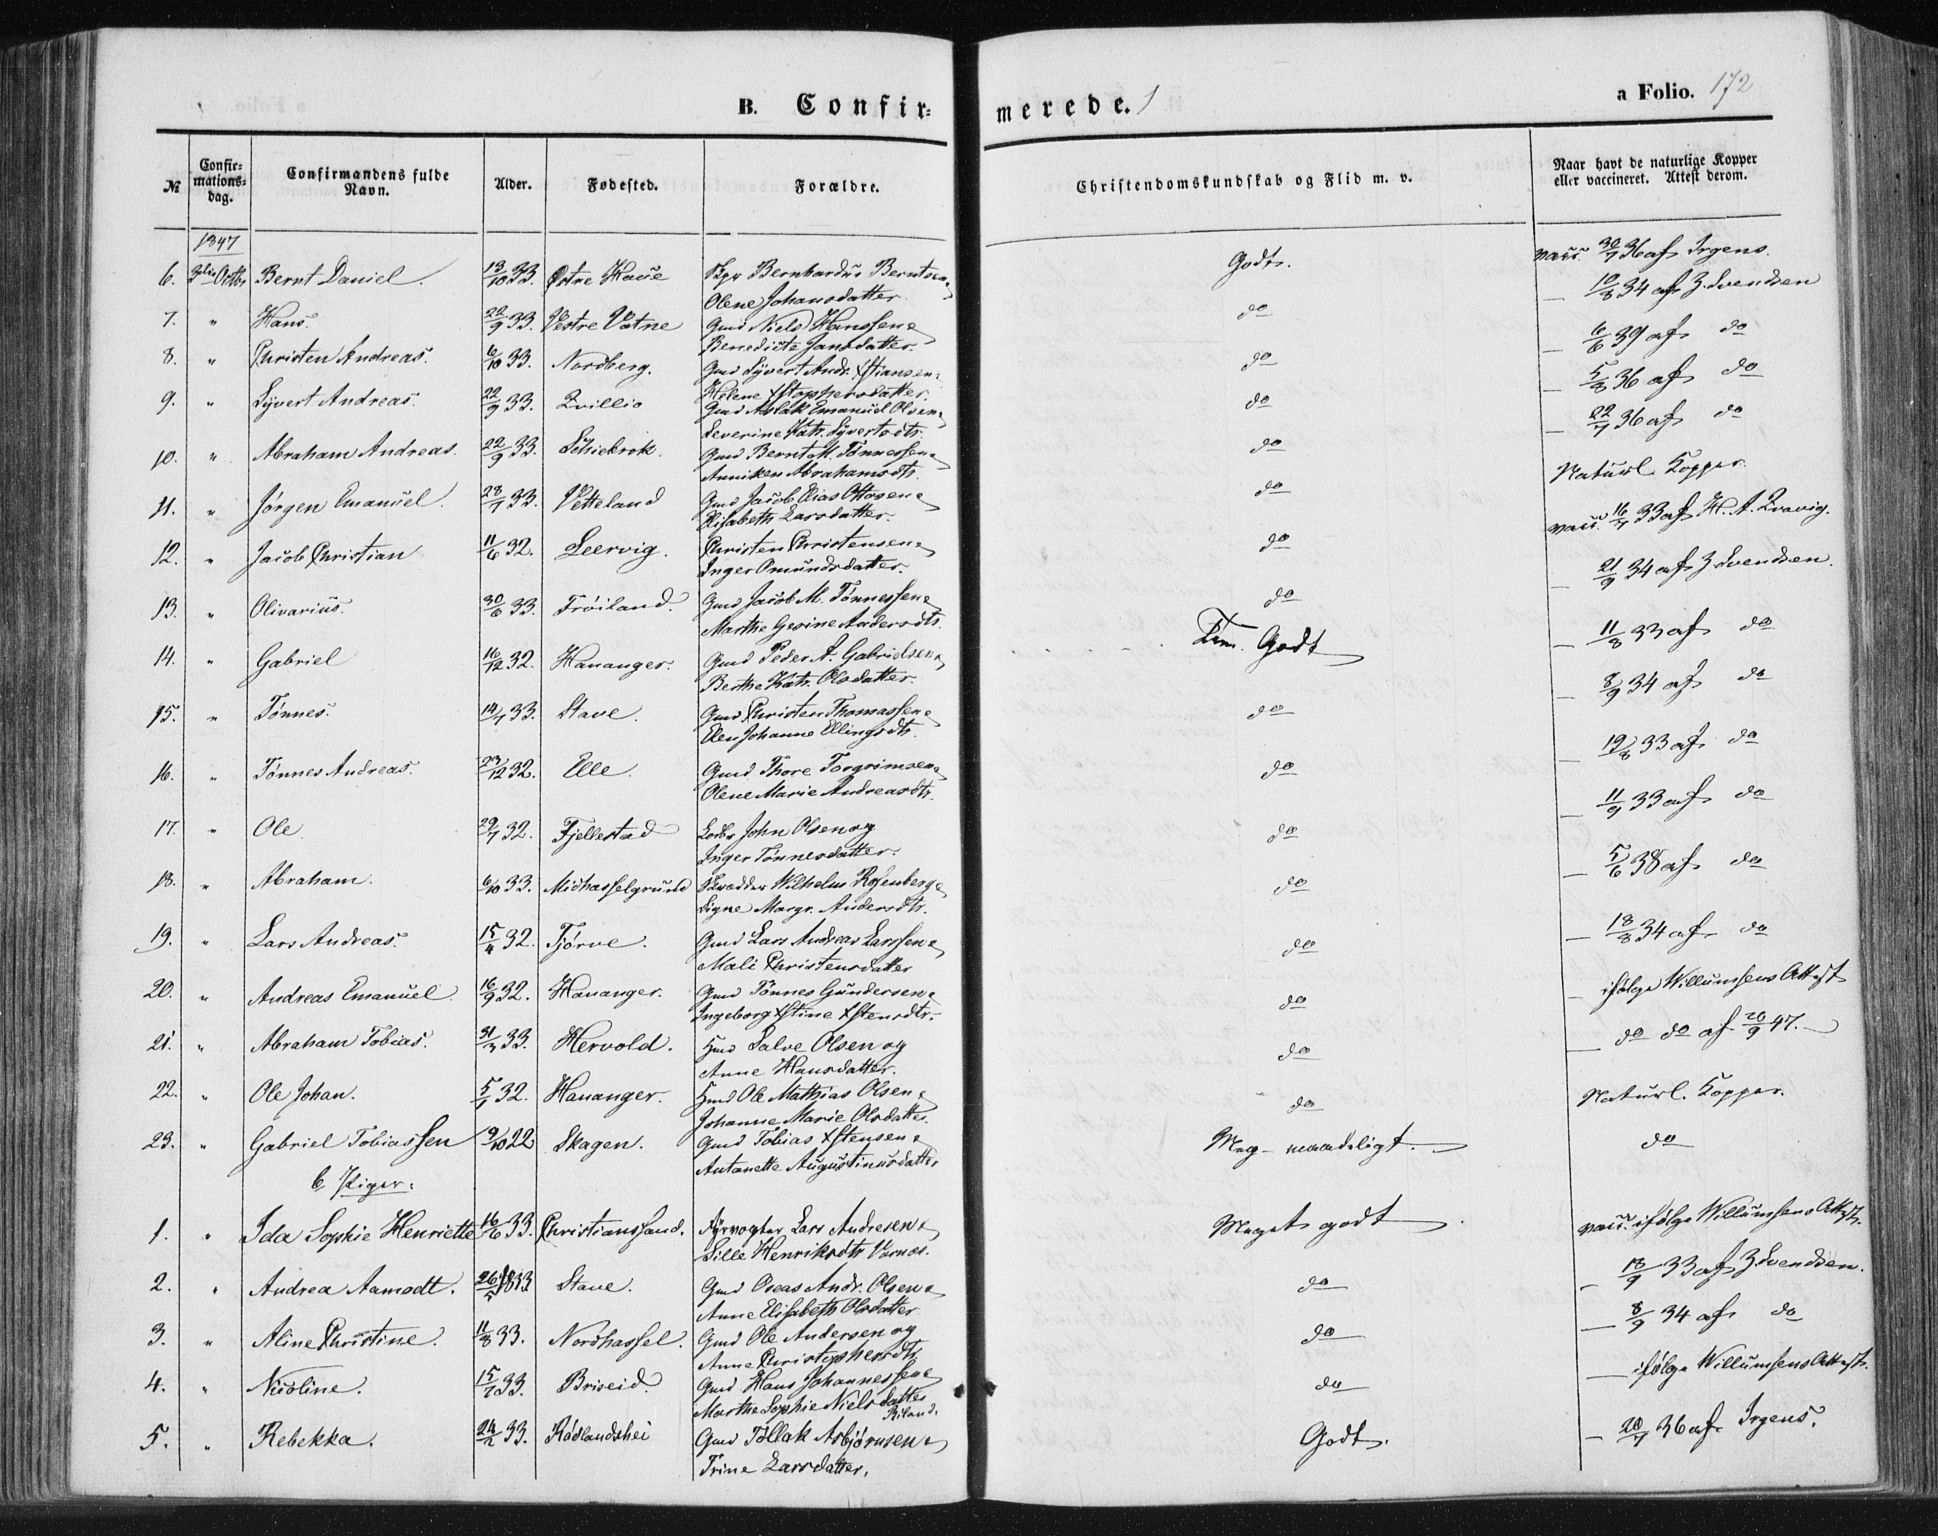 B. Confir-
merede.
a Folio. 172
№
Confir-mations-dag.
Confirmandens fulde Navn.
Alder.
Fødested.
Forældre.
Christendomskundskab og Flid m. v.
Naar havt de naturlige Kopper eller vaccineret. Attest derom.
1847
6. 3die Octbr Bernt Daniel. 13/10 33. Østre Haue Bernhardus Berntsen & Godt. vacc. 30/7 36 af Irgens.
Olene Johansdatter.
7. " Hans. 22/9 33. Vestre Vatne Gmd Niels Hanssen & do — 10/8 34 af Z. Svendsen
Benedicte Jansdatter.
8. " Christen Andreas. 6/10 33. Nordberg. Gmd Syvert Andr. Xstiansen & do — 6/6 39 af do
Helene Xstophersdatter.
9. " Syvert Andreas. 22/9 33. Qvillio Gmd Aslak Emanuel Olsen & do — 5/8 36 af do
Severine Katr. Syvertsdtr.
10. " Abraham Andreas. 22/9 33. Schiebrok. Gmd Bernt M. Tønnessen & do — 22/7 36 af do
Anniken Abrahamsdtr.
11. " Jørgen Emanuel. 28/7 33. Vetteland Gmd Jacob Elias Ottosen & do Naturl. Kopper.
Elisabeth Larsdatter.
12. " Jacob Christian 11/6 32. Leervig. Christen Christensen & do vacc. 16/7 33 af H. A. Qvavig.
Inger Omundsdatter.
13. " Olivarius. 30/6 33. Frøiland. Gmd Jacob M. Tønnessen & do — 21/9 34 af Z. Svendsen.
Marthe Gesine Andersdtr.
14. " Gabriel 16/12 32. Hananger. Gmd Peder A. Gabrielsen & Tem. Godt — 11/8 33 af do
Berthe Katr. Olsdatter.
15. " Tønnes. 14/7 33. Stave. Gmd Christen Thomassen & do — 8/9 34 af do
Elen Johanne Ellingsdtr.
16. " Tønnes Andreas. 23/12 32. Elle. Gmd Thore Torgrimsen & do — 19/8 33 af do
Olene Marie Andreasdtr.
17. " Ole. 29/7 32. Fjellestad John Olsen og do — 11/9 33 af do
Inger Tønnesdatter.
18. " Abraham. 6/10 33. Midhasselgrund Skrædder Wilhelm Rosenberg & do — 5/6 38 af do
Signe Margr. Andersdtr.
19. " Lars Andreas. 15/4 32. Tjørve. Gmd Lars Andreas Larssen & do — 18/8 34 af do
Mali Christensdatter
20. " Andreas Emanuel. 16/9 32. Hananger. Gmd Tønnes Gundersen & do — ifølge Willumsens Attest
Ingeborg Xstine Xstensdtr.
21. " Abraham Tobias. 31/3 33. Hervold. Hmd Salve Olsen og do — do do af 20/9 47.
Anne Hansdatter.
22. " Ole Johan. 5/1 32. Hananger. Hmd Ole Mathias Olsen & do Naturl. Kopper.
Johanne Marie Olsdatter.
23. " Gabriel Tobiassen 9/10 22 Skagen. Gmd Tobias Xstensen & Meg- maadeligt. do
Antonette Augustinusdatter
b, Piger.
1. " Ida Sophie Henriette 16/6 33. Christianssand. Fyrvogter Lars Andresen & Meget godt vacc. ifølge Willumsens Attest.
Sille Henriksdtr Varnæs.
2. " Andrea Aamodt. 26/5 1833. Stave. Gmd Oseas Andr. Olsen & do — 18/9 33 af Z. Svendsen.
Anne Elisabeth Olsdatter
3. " Aline Christine. 11/8 33. Nordhassel. Gmd Ole Andersen og do — 8/9 34 af do
Anne Christophersdtr
4. " Nicoline. 15/7 33. Briseid. Gmd Hans Johannessen & do — ifølge Willumsens Attest.
Marthe Sophie Nielsdatter
Riland.
5. " Rebekka. 24/2 33. Rødlandshei Gmd Tollak Asbjørnsen & Godt. — 20/7 36 af Irgens.
Trine Larsdatter.